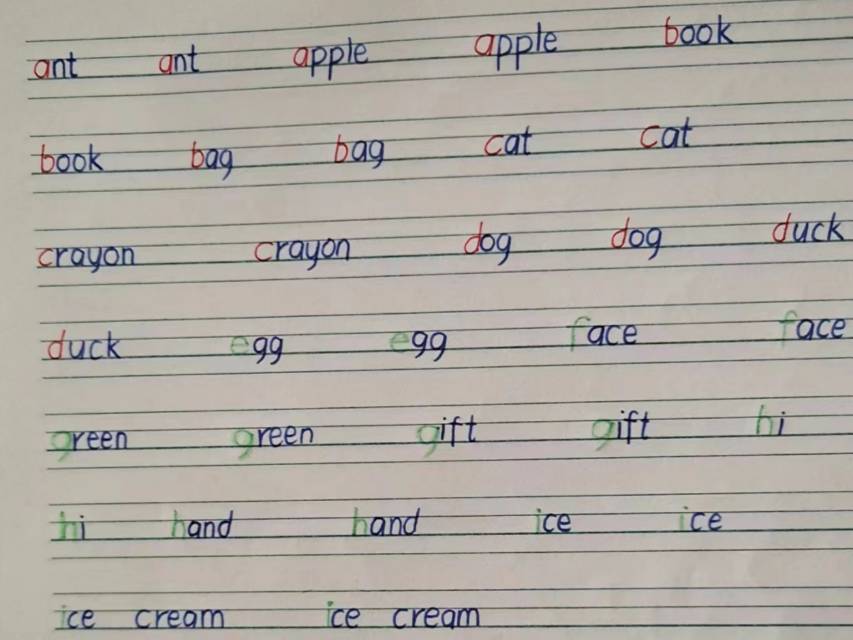 ant ant apple apple book
book bag bag cat cat
crayon crayon dog dog duck
duck egg egg face face
green green gift gift hi
hi hand hand ice ice
ice cream ice cream